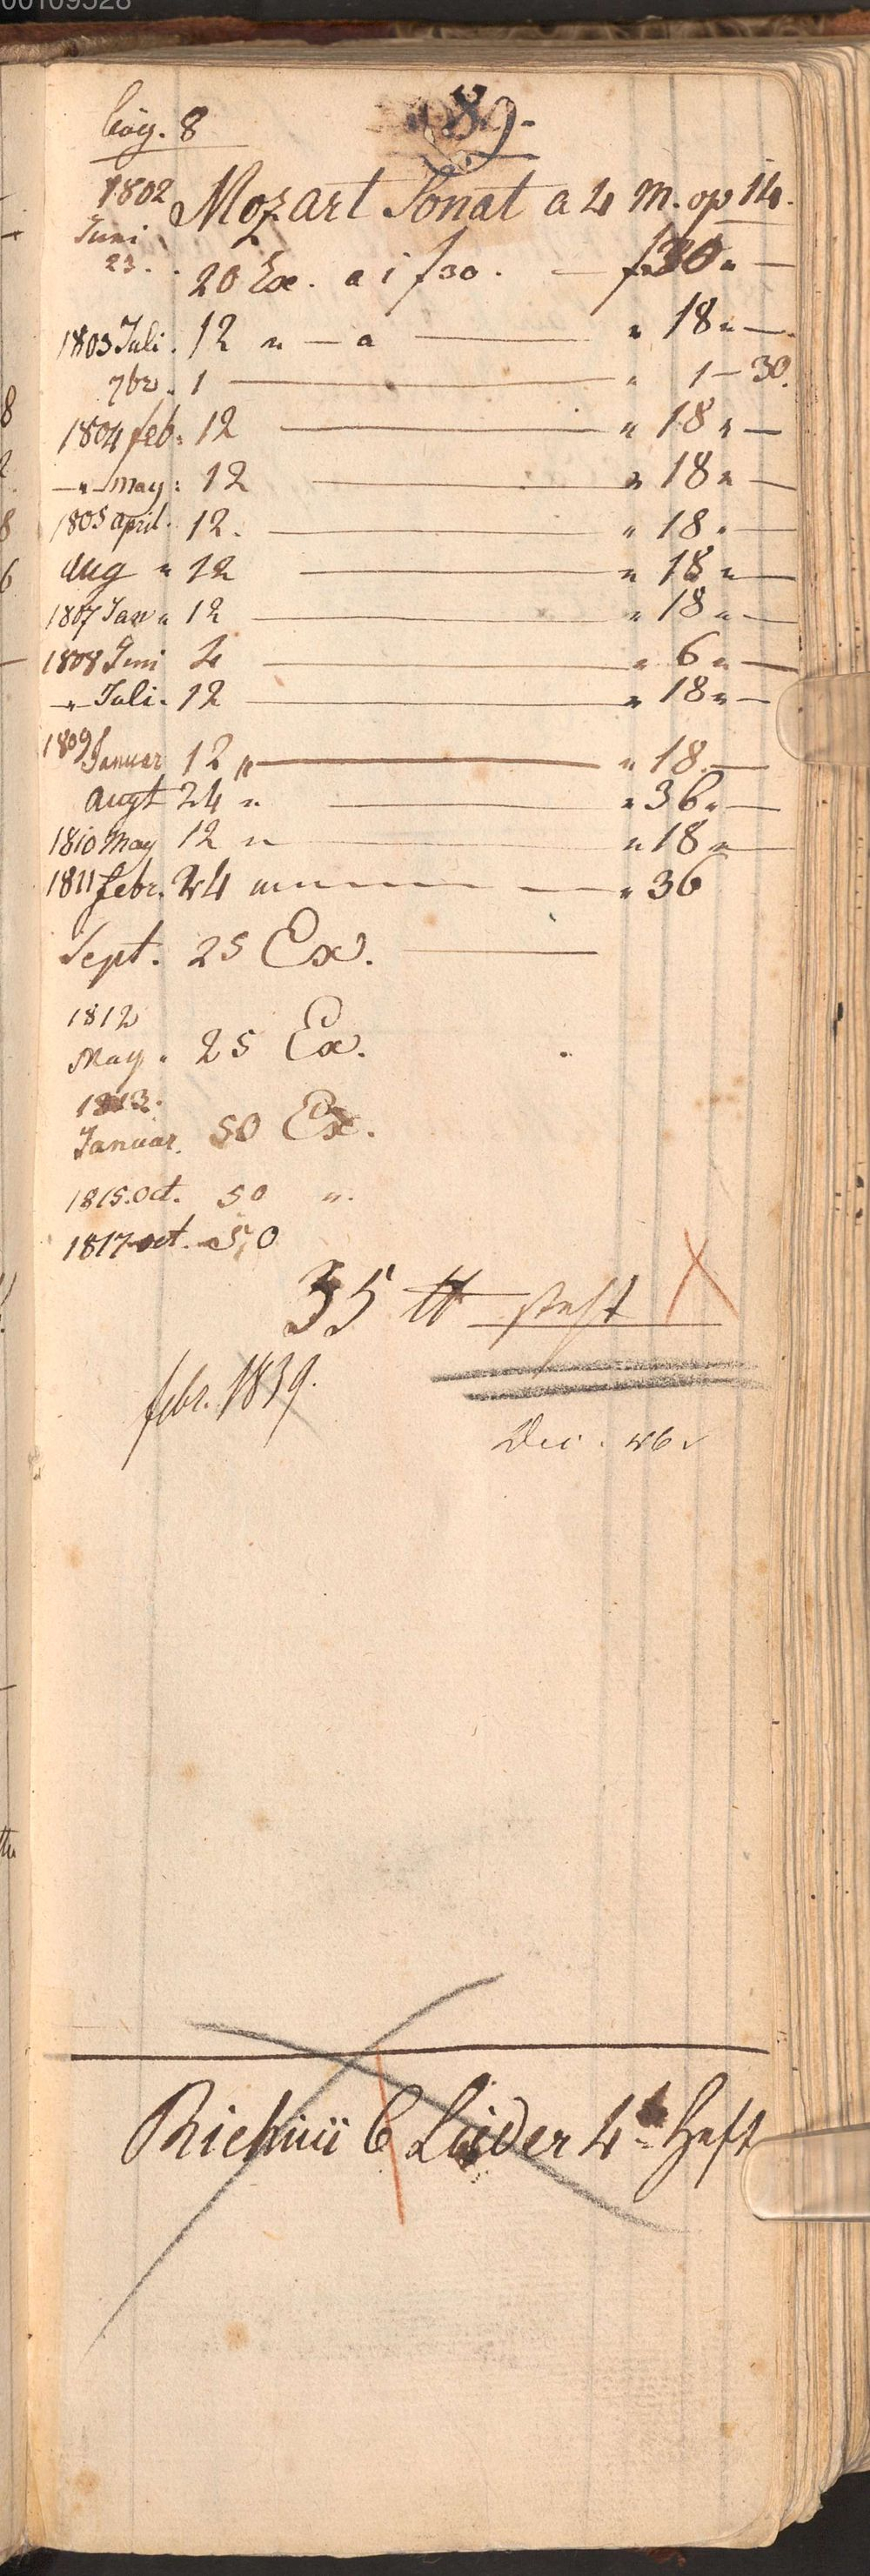 00109528
bög. 8
89.
1802 Mozart Sonat a 4 M. op 14.
Juni
23. 20 Ex. a 1 f 30. — f 30 „ —
1803 Juli. 12 „ — a — „ 18 „ —
7br. 1 — „ 1 — 30.
1804 feb: 12 — „ 18 „ —
— „ — may: 12 — „ 18 „ —
1805 april. 12. — „ 18 „ —
Aug „ 12 — „ 18 „ —
1807 Jan „ 12 — „ 18 „ —
1808 Juni 4 — „ 6 „ —
— „ Juli. 12 — „ 18 „ —
1809 Januar 12 „ — „ 18 —
augt 24 „ — „ 36 „ —
1810 May 12 „ — „ 18 „ —
1811 febr. 24 „ — „ 36
Sept. 25 Ex. —
1812
May „ 25 Ex.
1813.
Januar. 50 Ex.
1815. Oct. 50 „
1817 oct. 50
35 ℔
febr. 1839.
Dec. 46
Righini 6 Lieder 4s Heft